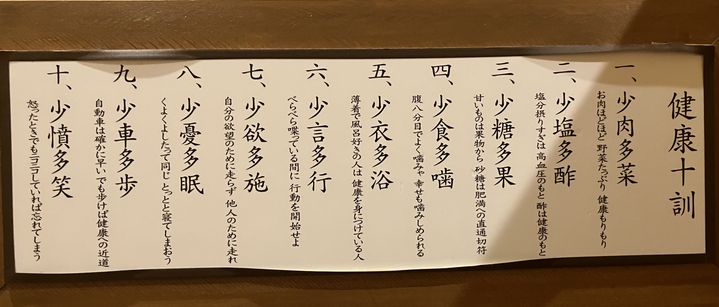 健康十訓
一、少肉多菜
お肉ほどほど 野菜たっぷり 健康もりもり
二、少塩多酢
塩分摂りすぎは 高血圧のもと 酢は健康のもと
三、少糖多果
甘いものは果物から 砂糖は肥満への直通切符
四、少食多噛
腹八分目でよく噛みゃ 幸せも噛みしめられる
五、少衣多浴
薄着で風呂好きの人は 健康を身につけている人
六、少言多行
べらべら喋っている間に 行動を開始せよ
七、少欲多施
自分の欲望のために走らず 他人のために走れ
八、少憂多眠
くよくよしたって同じ とっとと寝てしまおう
九、少車多歩
自動車は確かに早い でも歩けば健康への近道
十、少憤多笑
怒ったときでもニコニコしていれば忘れてしまう